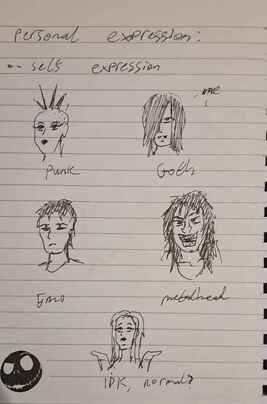 Personal expression:
-- self expression
me
Punk
Goth
Emo
metalhead
IDK, normal?